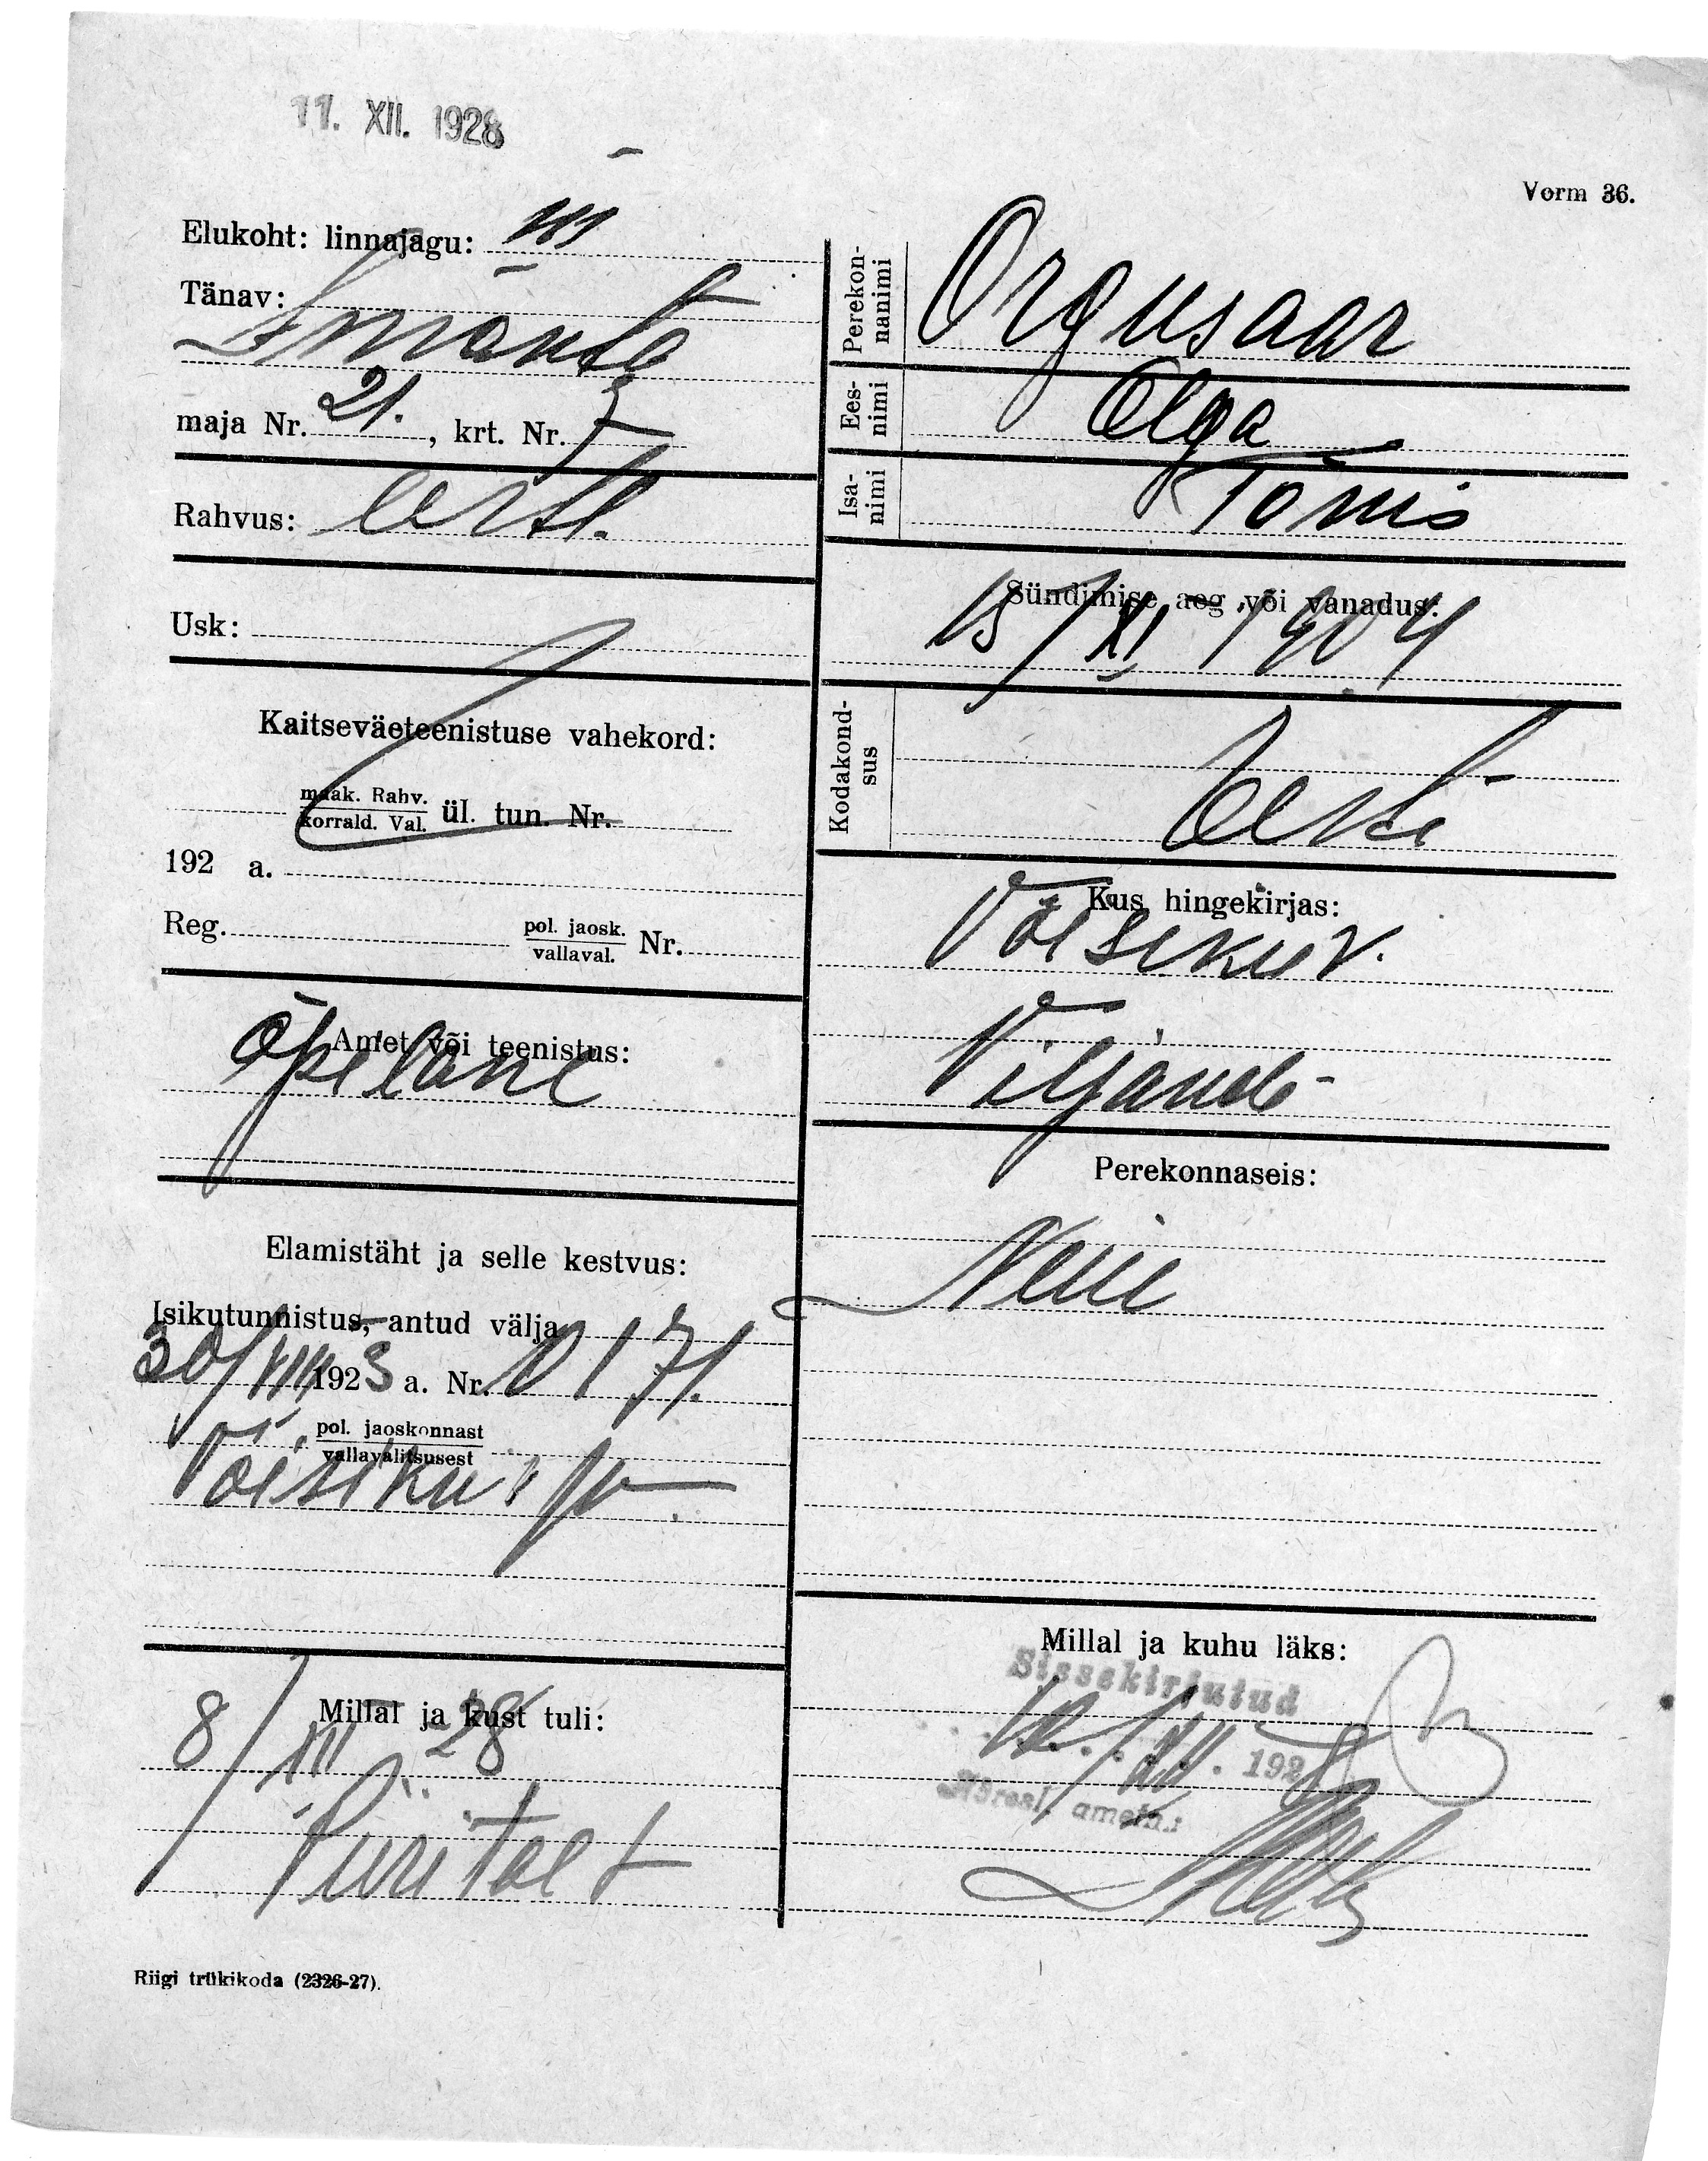 11. XII. 1928
Vorm 36.
Elukoht: linnajagu: III
Tänav:
maja Nr. 21., krt. Nr. 7
Rahvus: eesti.
Usk:
Kaitseväeteenistuse vahekord:
maak. Rahv.
korrald. Val. ül. tun. Nr.
192 a.
Reg. pol. jaosk.
vallaval. Nr.
Amet või teenistus:
õpilane
Elamistäht ja selle kestvus:
Isikutunnistus, antud välja
30/VIII 1923 a. Nr. 0171.
pol. jaoskonnast
vallavalitsusest
Võisiku
Millal ja kust tuli:
8/XII 28
Piiritalt
Riigi trükikoda (2326-27).
Perekonnanimi Orgusaar
Eesnimi Olga
Isanimi Tõnis
Sündimise aeg või vanadus:
15/XI 1904
Kodakondsus Eesti
Kus hingekirjas:
Võisiku v.
Viljandi
Perekonnaseis:
Neiu
Millal ja kuhu läks:
Sissekirjutud
12./XII. 1928
Adressl. ametn.: